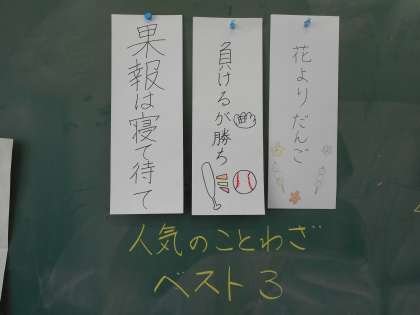 花よりだんご
負けるが勝ち
果報は寝て待て
人気のことわざ
ベスト3